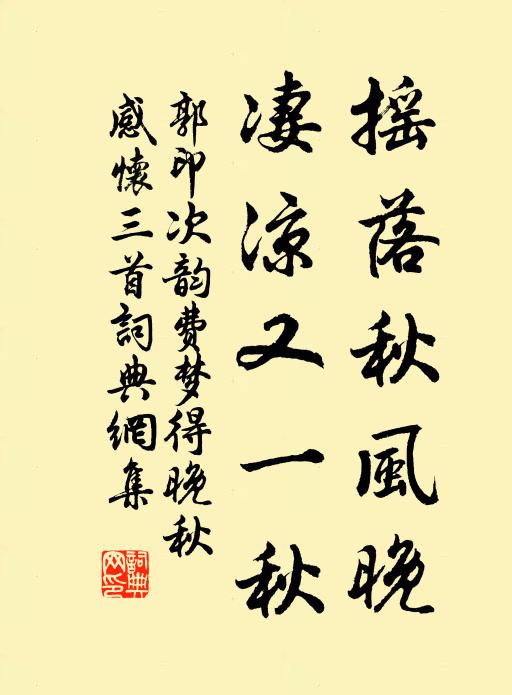 摇落秋風晚
凄凉又一秋
郭印次韵费梦得晚秋
感懷三首詞典網集
詞典
网印